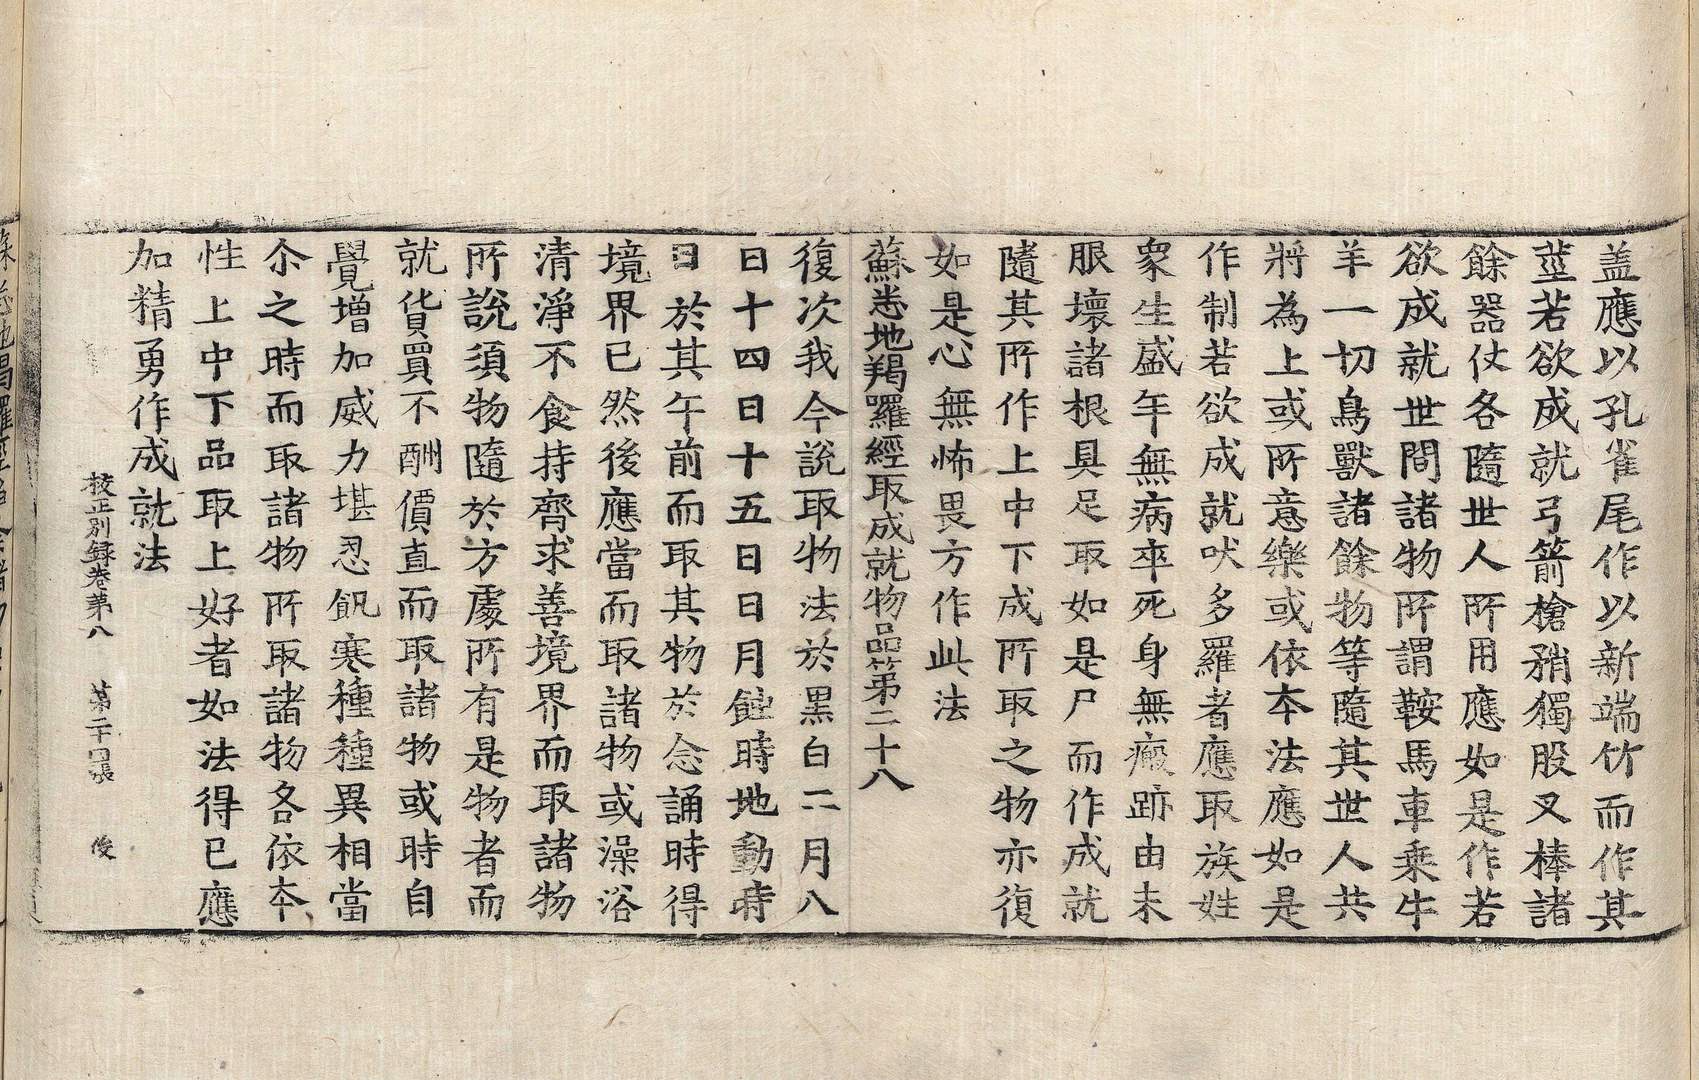 盖應以孔雀尾作以新端竹而作其
莖若欲成就弓箭槍矟獨股叉棒諸
餘器仗各隨世人所用應如是作若
欲成就世間諸物所謂鞍馬車乘牛
羊一切鳥獸諸餘物等隨其世人共
將為上或所意樂或依夲法應如是
作制若欲成就吠多羅者應取族姓
衆生盛年無病卒死身無瘢跡由未
眼壞諸根具足取如是尸而作成就
隨其所作上中下成所取之物亦復
如是心無怖畏方作此法
蘇悉地羯羅經取成就物品第二十八
復次我今說取物法於黑白二月八
日十四日十五日日月蝕時地動時
日於其午前而取其物於念誦時得
境界已然後應當而取諸物或澡浴
清淨不食持齊求善境界而取諸物
所說須物隨於方處所有是物者而
就貨買不酬價直而取諸物或時自
覺增加威力堪忍飢寒種種異相當
尒之時而取諸物所取諸物各依夲
性上中下品取上好者如法得已應
加精勇作成就法
校正別録卷第八 第二十口張 俊